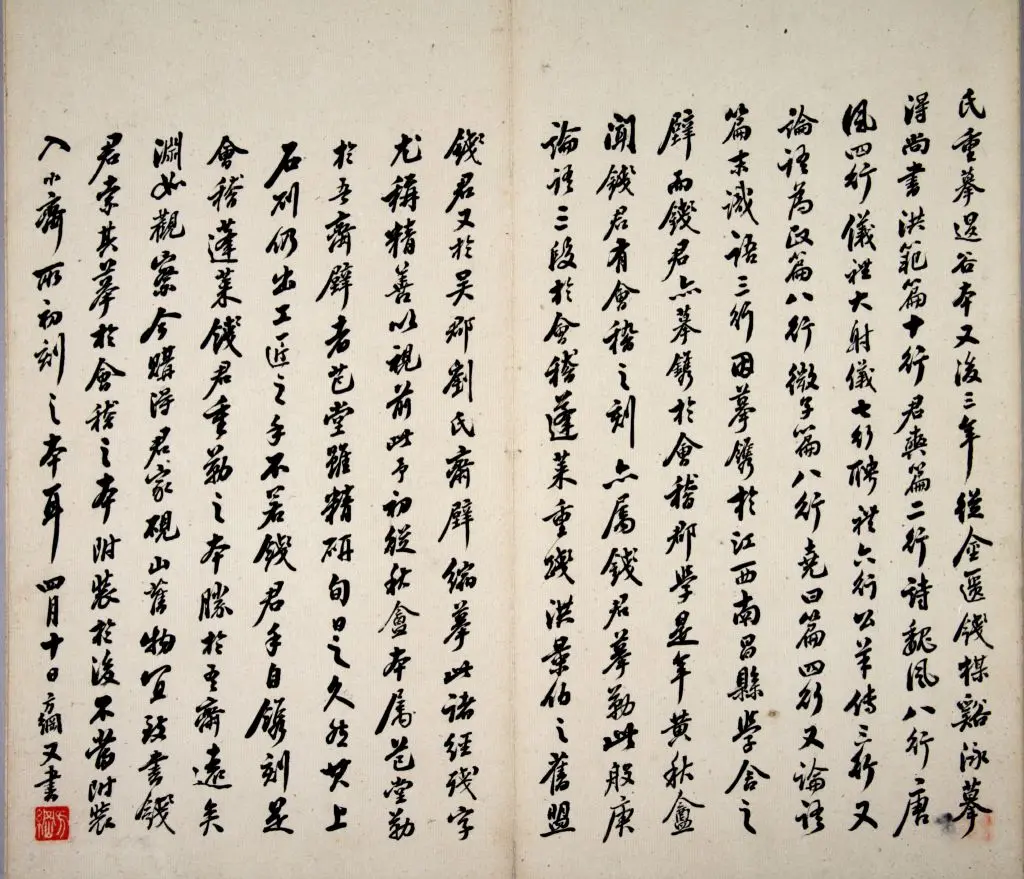 氏重摹退谷本又後三年從金匱錢楳谿泳摹
得尚書洪範篇十行君奭篇二行詩魏風八行唐
風四行儀禮大射儀七行聘禮六行公羊傳三行又
論語為政篇八行微子篇八行堯曰篇四行又論語
篇末識語三行因摹鐫於江西南昌縣學舍之
壁而錢君亦摹鐫於會稽郡學是年黃秋盦
聞錢君有會稽之刻亦屬錢君摹勒此般庚
論語三段於會稽蓬萊重踐洪景伯之舊盟
錢君又於吳郡劉氏齋壁縮摹此諸經殘字
尤稱精善以視前此予初從秋盦本屬芑堂勒
於吾齋壁者芑堂雖精研旬日之久然其上
石刻仍出工匠之手不若錢君手自鐫刻是
會稽蓬萊錢君重勒之本勝於吾齋遠矣
淵如觀察今購得君家硯山舊物宜致書錢
君索其摹於會稽之本附裝於後不當附裝
入小齋所初刻之本耳四月十日方綱又書
方綱